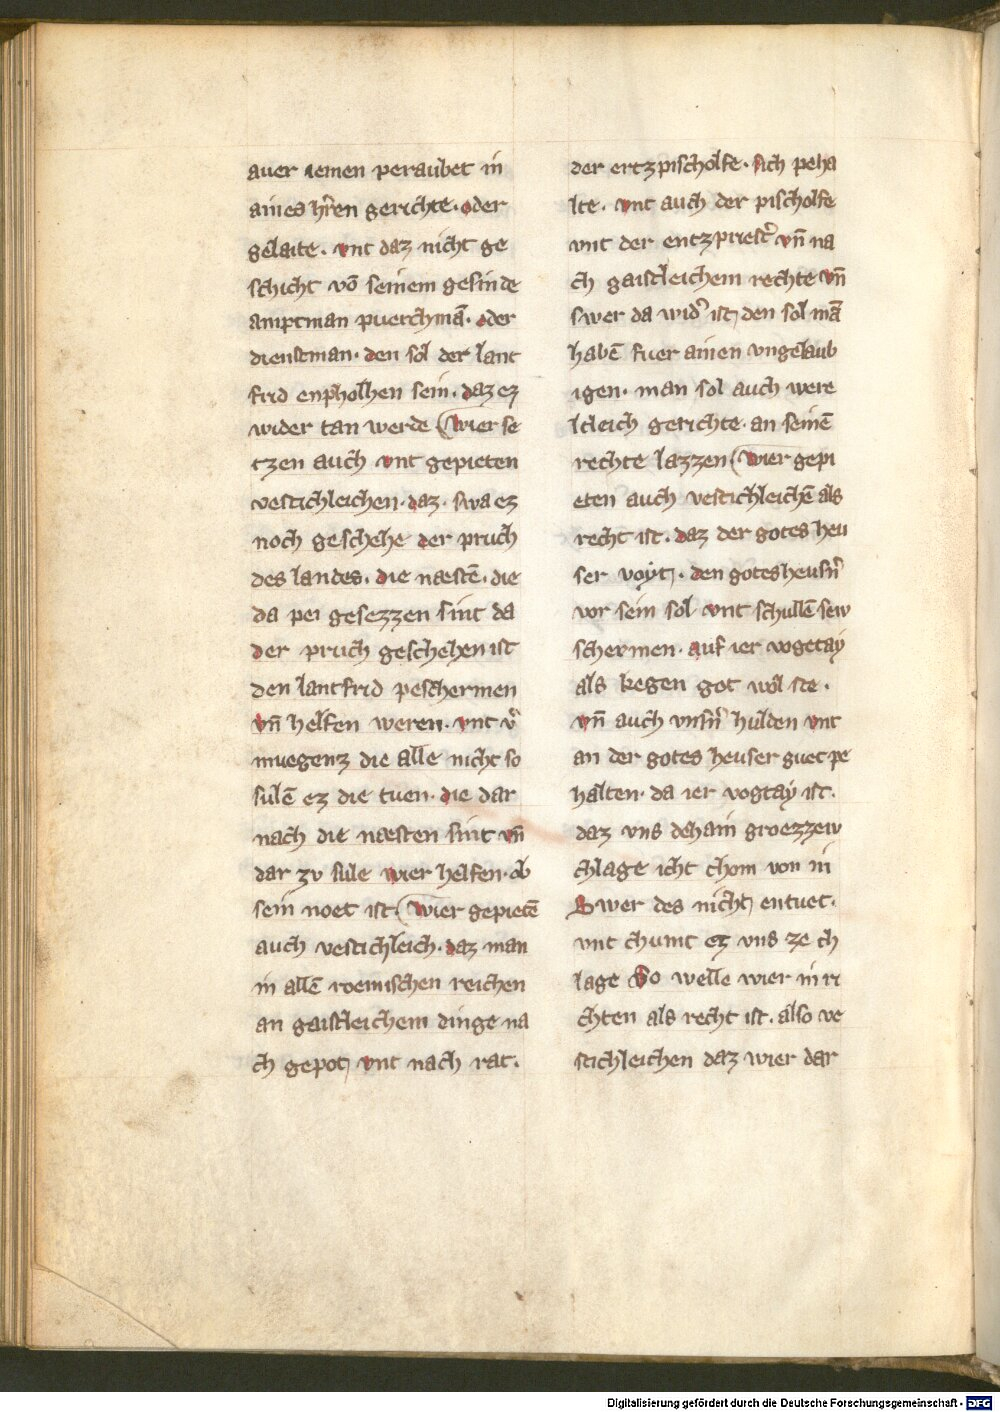 auer iemen peraubet in
aines hr̄en gerichte. oder
gelaite. vnt daz nicht ge
schicht vō seinem gesinde
amptman puerchmā. oder
dienstman. den sol der lant
frid enpholhen sein. daz ez
wider tan werde wier se
tzen auch vnt gepieten
vestichleichen. daz. swa ez
noch geschehe der pruch
des landes. die næstē. die
da pei gesezzen sint da
der pruch geschehen ist
den lantfrid peschermen
vn̄ helfen weren. vnt v̓
muegenz die alle nicht so
sulē ez die tuen. die dar
nach die næsten sint vn̄
dar zv sule wier helfen. ob
sein noet ist. wier gepietē
auch vestichleich. daz man
in allē roemischen reichen
an gaistleichem dinge na
ch gepot vnt nach rat.
der ertzpischolfe. sich peha
lte. vnt auch der pischolfe
vnt der entzpriest̓ vn̄ na
ch gaistleichem rechte vn̄
swer da wid̓ ist, den sol mā
habē fuer ainen vngelaub
igen. man sol auch were
ltleich gerichte. an seinē
rechte lazzen wier gepi
eten auch vestichleichē als
recht ist. daz der gotes heu
ser voyt. den gotesheusn̓
vor sein sol vnt schullē sew
schermen. auf ier vogetay
als kegen got wol ste.
vn̄ auch vnsn̓ hulden vnt
an der gotes heuser guet pe
halten. da ier vogtay ist.
daz vns dehain groezzew
chlage icht chom von in
Swer des nicht entuet.
vnt chumt ez vns ze ch
lage So welle wier in ri
chten als recht ist. also ve
stichleichen daz wier dar
Digitalisierung gefördert durch die Deutsche Forschungsgemeinschaft - DFG